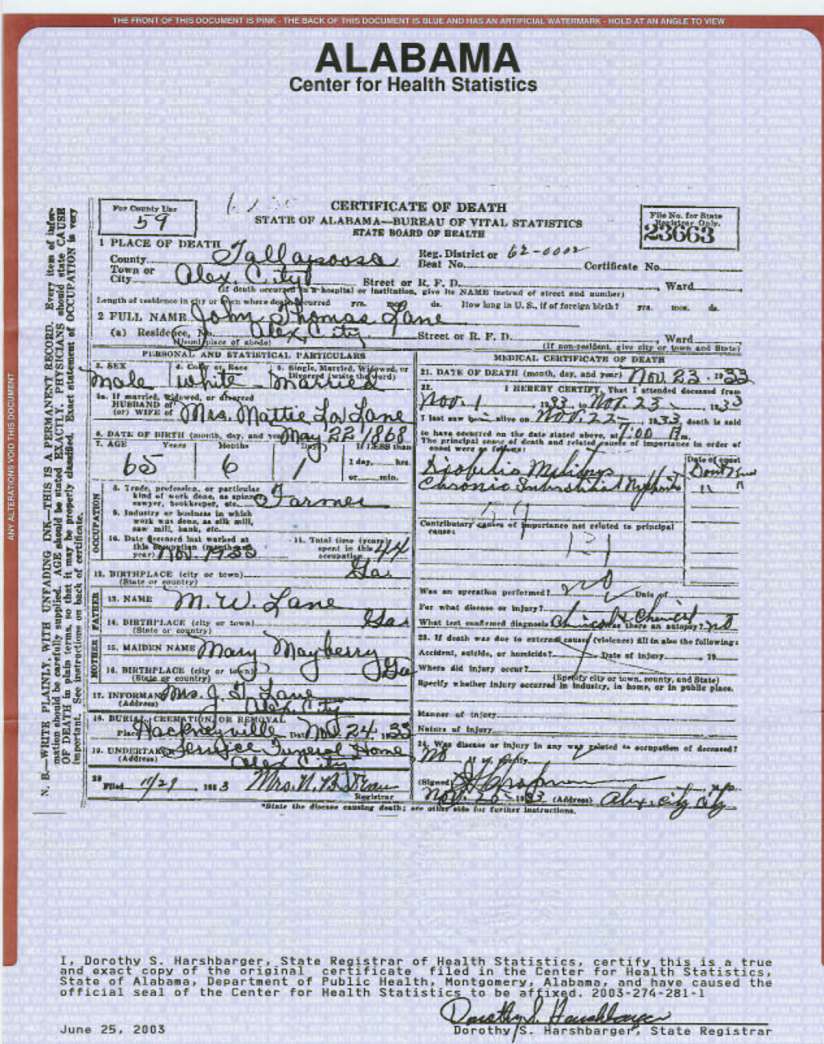 THE FRONT OF THIS DOCUMENT IS PINK - THE BACK OF THIS DOCUMENT IS BLUE AND HAS AN ARTIFICIAL WATERMARK - HOLD AT AN ANGLE TO VIEW
ALABAMA
Center for Health Statistics
ANY ALTERATIONS VOID THIS DOCUMENT
N. B.—WRITE PLAINLY, WITH UNFADING INK—THIS IS A PERMANENT RECORD. Every item of infor-
mation should be carefully supplied. AGE should be stated EXACTLY. PHYSICIANS should state CAUSE
OF DEATH in plain terms, so that it may be properly classified. Exact statement of OCCUPATION is very
important. See instructions on back of certificate.
For County Use
59
CERTIFICATE OF DEATH
STATE OF ALABAMA—BUREAU OF VITAL STATISTICS
STATE BOARD OF HEALTH
File No. for State
Registrar Only.
23663
1 PLACE OF DEATH
County Tallapoosa
Reg. District or 62-0002
Beat No. Certificate No.
Town or
City Alex City
Street or R. F. D. Ward
(If death occurred in a hospital or institution, give its NAME instead of street and number)
Length of residence in city or town where death occurred yrs. mos. ds. How long in U. S., if of foreign birth? yrs. mos. ds.
2 FULL NAME John Thomas Lane
(a) Residence, No. Alex City Street or R. F. D. Ward
(Usual place of abode) (If non-resident, give city or town and State)
PERSONAL AND STATISTICAL PARTICULARS
3. SEX 4. Color or Race 5. Single, Married, Widowed, or
Divorced (write the word)
Male White Married
5a. If married, widowed, or divorced
HUSBAND of
(or) WIFE of Mrs. Mattie Lane
6. DATE OF BIRTH (month, day, and year) May 22 1868
7. AGE Years Months Days If LESS than
65 6 1 1 day, hrs.
or min.
OCCUPATION
8. Trade, profession, or particular
kind of work done, as spinner,
sawyer, bookkeeper, etc. Farmer
9. Industry or business in which
work was done, as silk mill,
saw mill, bank, etc.
10. Date deceased last worked at
this occupation (month and
year) Nov. 1933
11. Total time (years)
spent in this
occupation 44
12. BIRTHPLACE (city or town) Ga
(State or country)
FATHER
13. NAME M. W. Lane
14. BIRTHPLACE (city or town) Ga
(State or country)
MOTHER
15. MAIDEN NAME Mary Mayberry
16. BIRTHPLACE (city or town) Ga
(State or country)
17. INFORMANT Mrs. J. T. Lane
(Address) Alex City
18. BURIAL, CREMATION, OR REMOVAL
Place Hackneyville Date Nov. 24 1933
19. UNDERTAKER Service Funeral Home
(Address) Alex City
20
Filed 11/29, 1933 Mrs. N. B.
Registrar
MEDICAL CERTIFICATE OF DEATH
21. DATE OF DEATH (month, day, and year) Nov. 23, 1933
22. I HEREBY CERTIFY, That I attended deceased from
Nov. 1, 1933, to Nov. 23, 1933
I last saw him alive on Nov. 22, 1933 death is said
to have occurred on the date stated above, at 7:00 m.
The principal cause of death and related causes of importance in order of
onset were as follows:
Date of onset
Mellitus Dont Know
Chronic Interstitial Nephritis 11 11
Contributory causes of importance not related to principal
cause:
131
Was an operation performed? no Date of
For what disease or injury?
What test confirmed diagnosis Clinical & Chemical Was there an autopsy? no
23. If death was due to external causes (violence) fill in also the following:
Accident, suicide, or homicide? Date of injury 19
Where did injury occur?
(Specify city or town, county, and State)
Specify whether injury occurred in industry, in home, or in public place.
Manner of injury
Nature of injury
24. Was disease or injury in any way related to occupation of deceased?
No
If so, specify
(Signed)
Nov. 1933 (Address) Alex City
*State the disease causing death; see other side for further instructions.
I, Dorothy S. Harshbarger, State Registrar of Health Statistics, certify this is a true
and exact copy of the original certificate filed in the Center for Health Statistics,
State of Alabama, Department of Public Health, Montgomery, Alabama, and have caused the
official seal of the Center for Health Statistics to be affixed. 2003-274-281-1
Dorothy S. Harshbarger
June 25, 2003
Dorothy S. Harshbarger, State Registrar